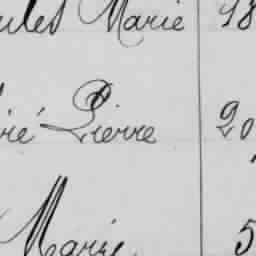 ules Marie 18
ré Pierre 20
Marie 5